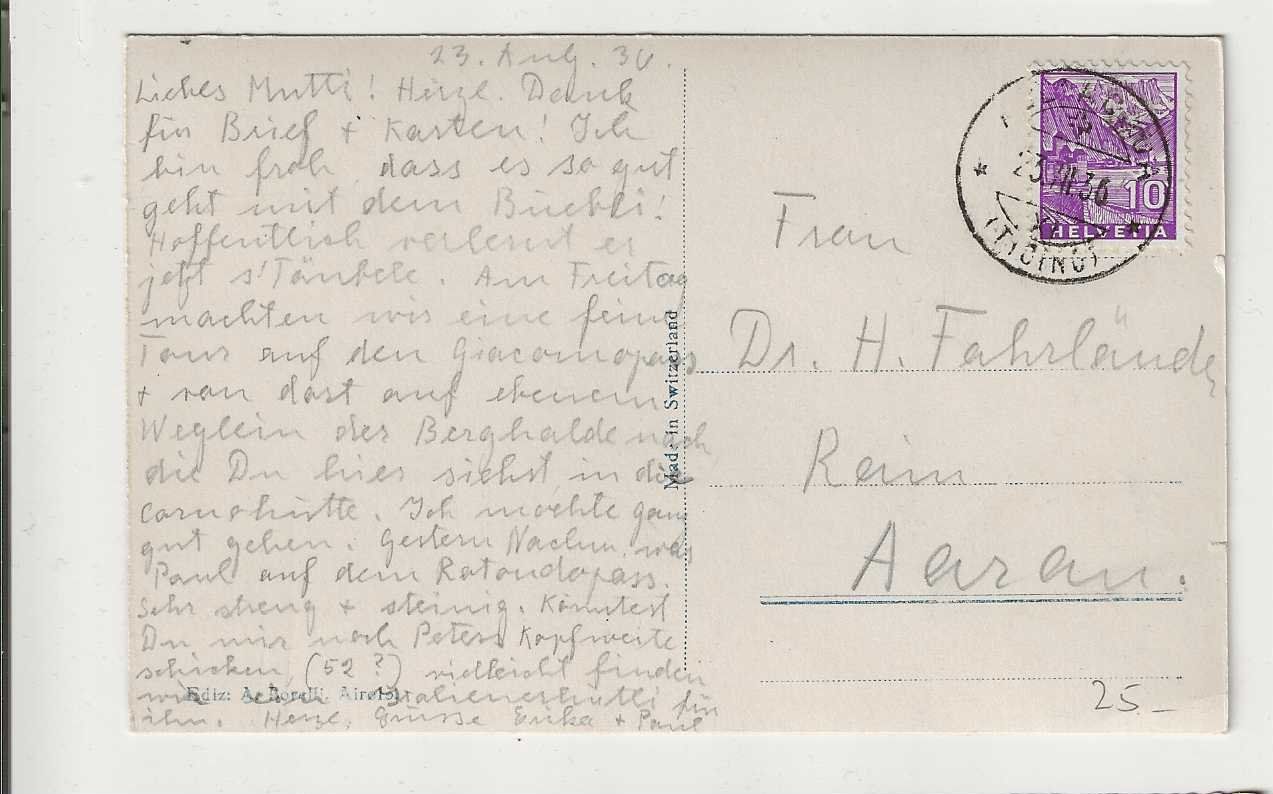 23. Aug. 36.
Liebes Mutti! Herzl. Dank
für Brief + Karten! Ich
bin froh dass es so gut
geht mit dem Buebli!
Hoffentlich verlernt er
jetzt s'Täubele. Am Freitag
machten wir eine feine
Tour auf den Giacomopass
+ von dort auf ebenem
Weglein der Berghalde nach
die Du hier siehst in die
Cornohütte. Ich mochte ganz
gut gehen. Gestern Nachm. war
Paul auf dem Rotondopass.
Sehr streng + steinig. Könntest
Du mir noch Peters Kopfweite
schicken, (52?) vielleicht finden
wir Italienerhütli für
ihn. Herzl. Grüsse Erika + Paul
Ediz: A. Borelli, Airolo
Made in Switzerland
23.VIII.36
(TICINO)
10
HELVETIA
Frau
Dr. H. Fahrländer
Rain
Aarau.
25.-